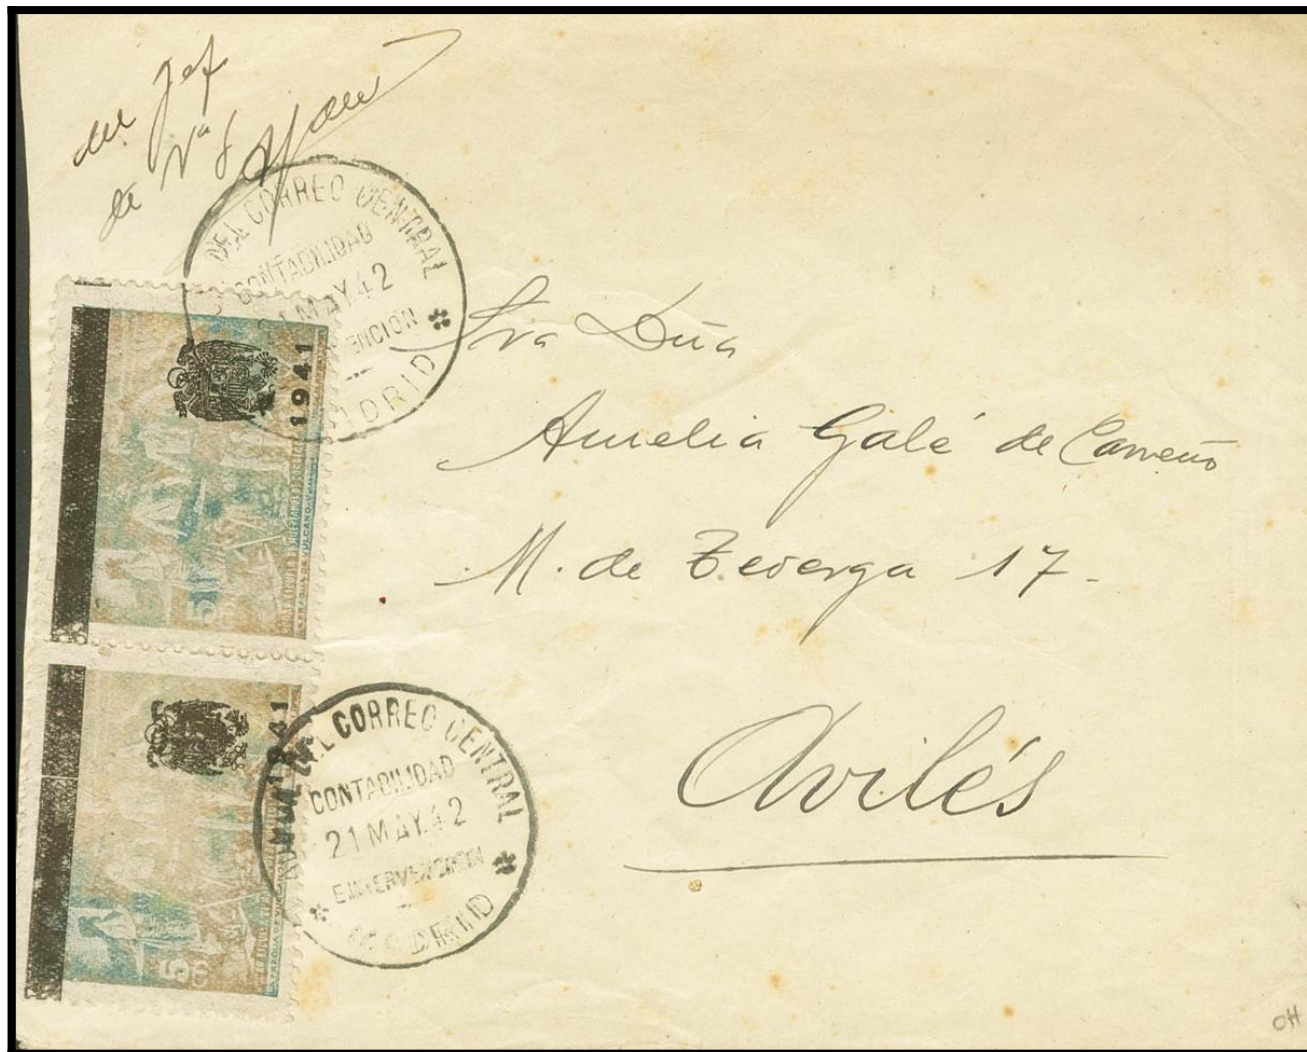 del Jef
de
DEL CORREO CENTRAL
CONTABILIDAD
MAY 42
MADRID
1941
5
Sra Dña
Aurelia Galé de Carreño
M. de Teverga 17.
Avilés
1941
5
DEL CORREO CENTRAL
CONTABILIDAD
21 MAY. 42
E INTERVENCION
MADRID
OH